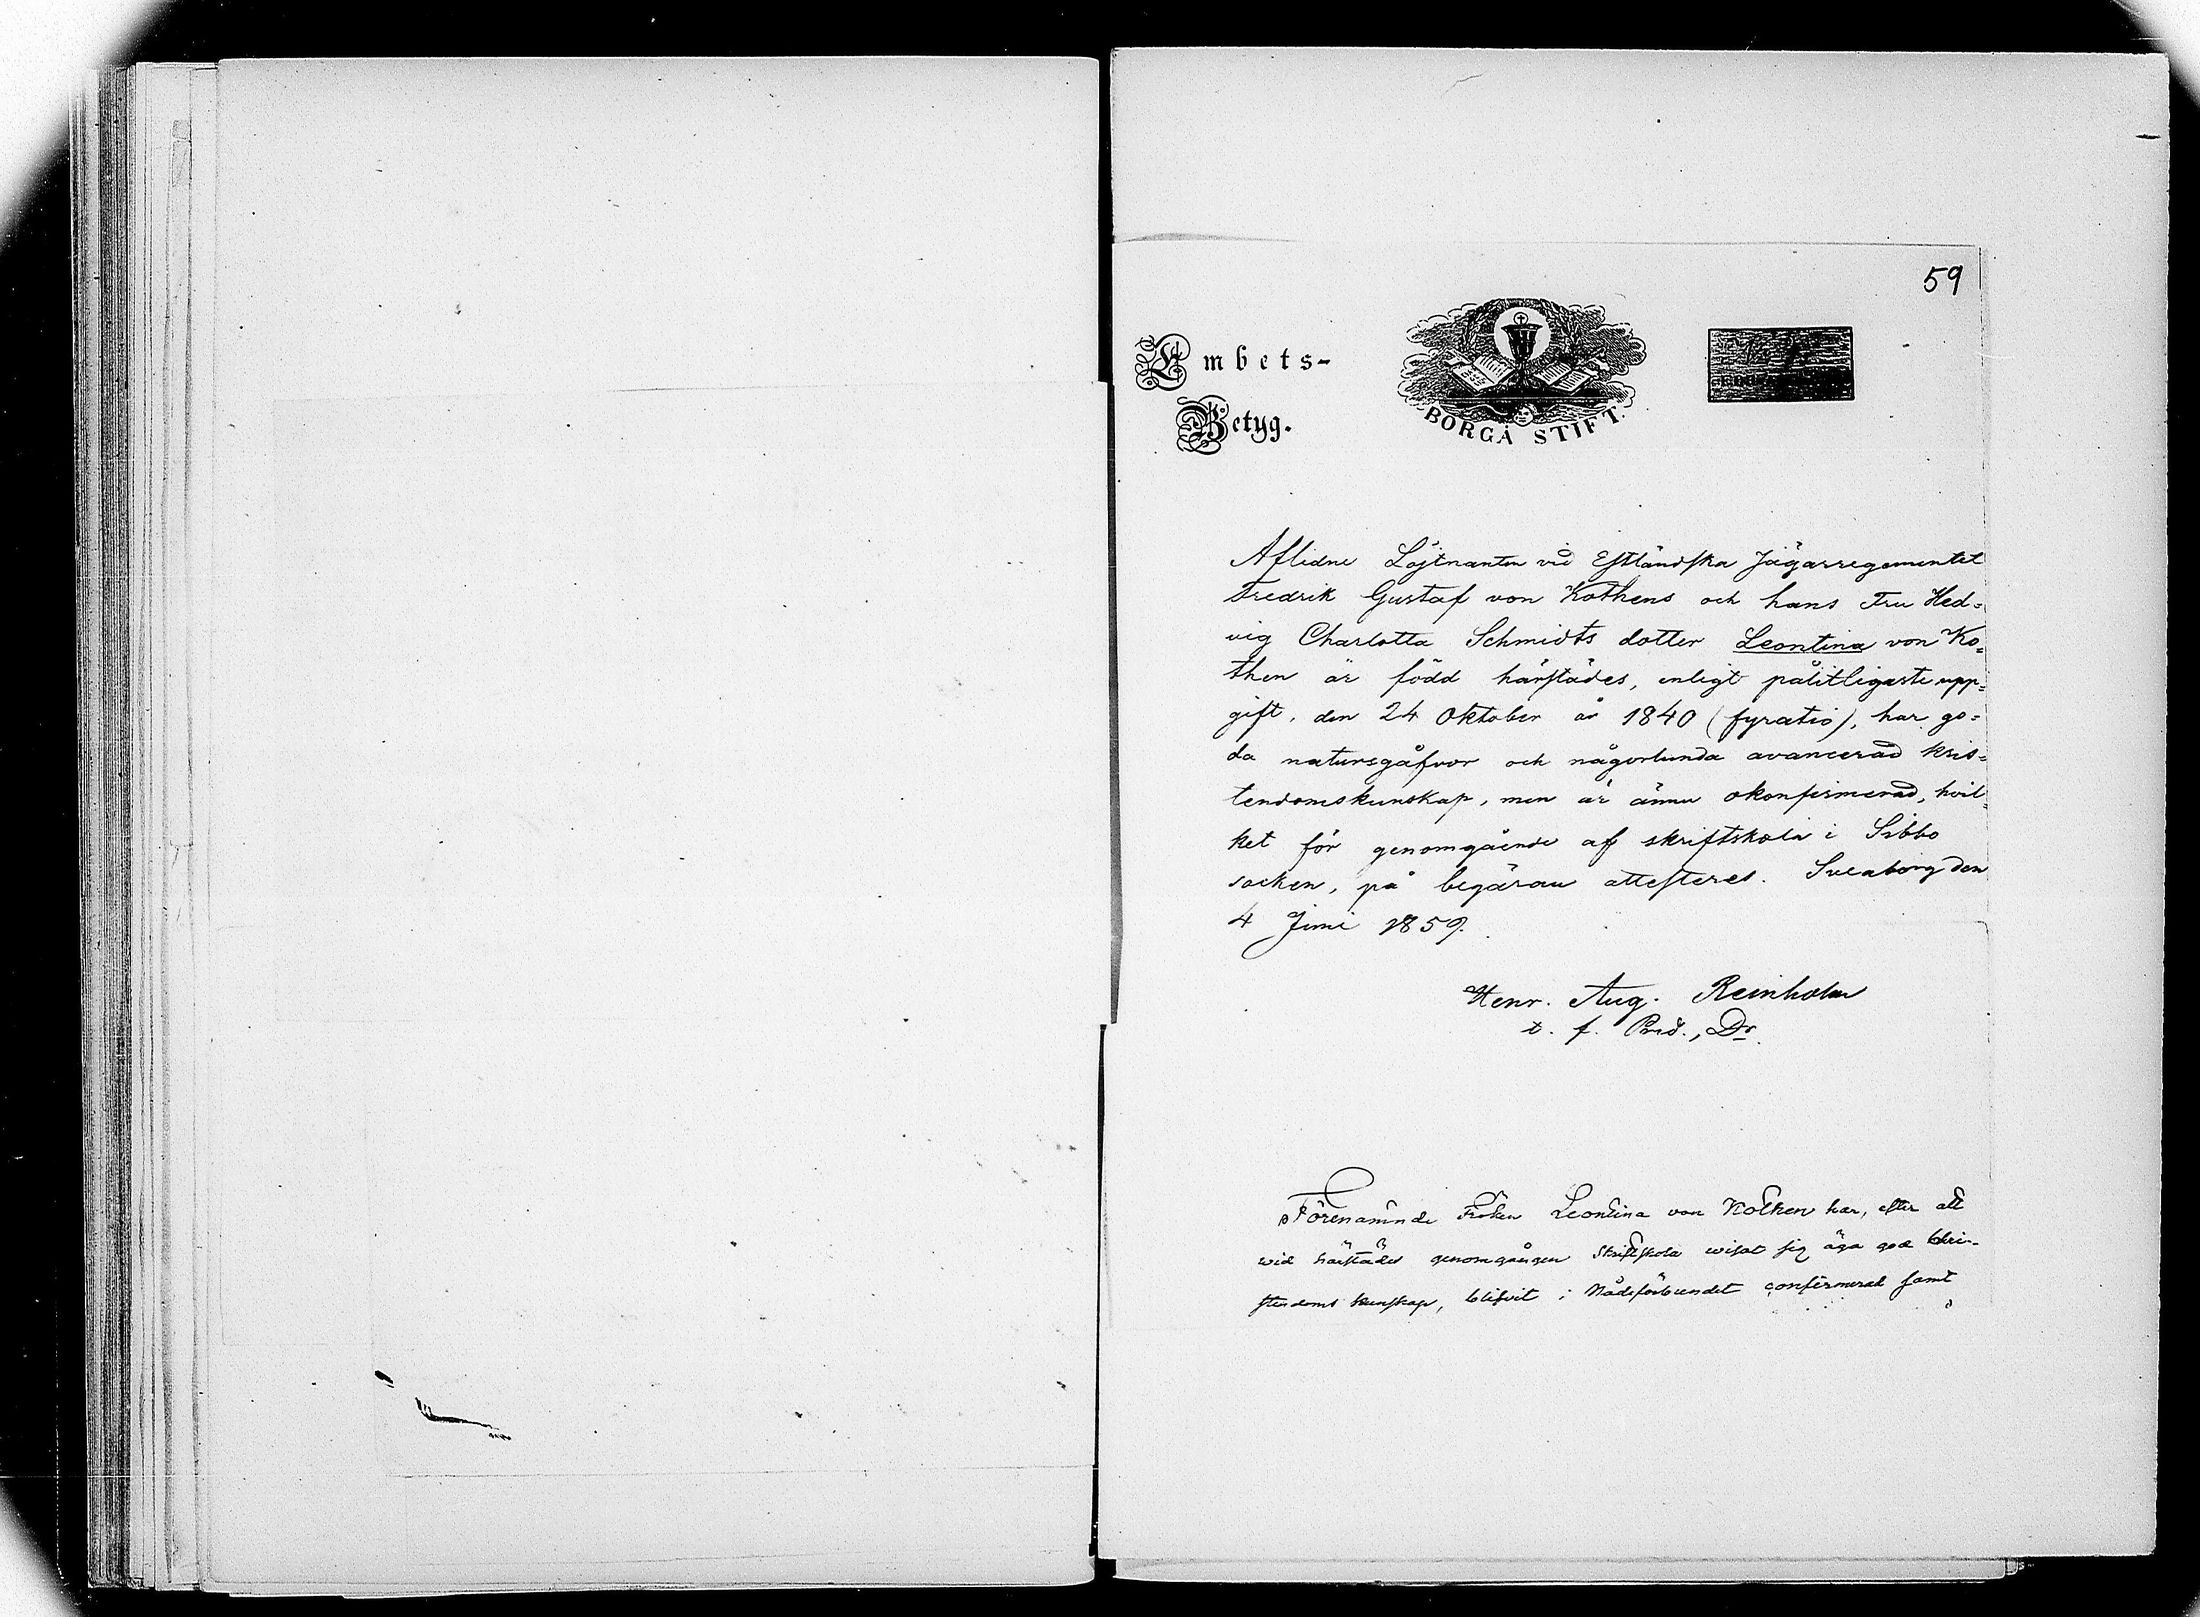 59
Embets-
Betyg.
BORGÅ STIFT.
Aflidne Löjtnanten vid Estländska Jägarregementet
Fredrik Gustaf von Kothens och hans Fru Hed=
vig Charlotta Schmidts dotter Leontina von Ko=
then är född härstädes, enligt pålitligaste upp=
gift, den 24 Oktober år 1840 (fyratio), har go=
da natursgåfvor och någorlunda avancerad kris=
tendomskunskap, men är ännu okonfirmerad, hvil=
ket för genomgående af skriftskola i Sibbo
socken, på begäran attesteras. Sveaborg den
4 Juni 1859.
Henr. Aug. Reinholm
t. f. Pred., Dr.
Förenämnde Fröken Leontina von Kothen har, efter att
wid härstädes genomgången Skriftskola wisat sig äga god Chri-
stendoms kunskap, blifvit i Nådeförbundet confirmerad samt